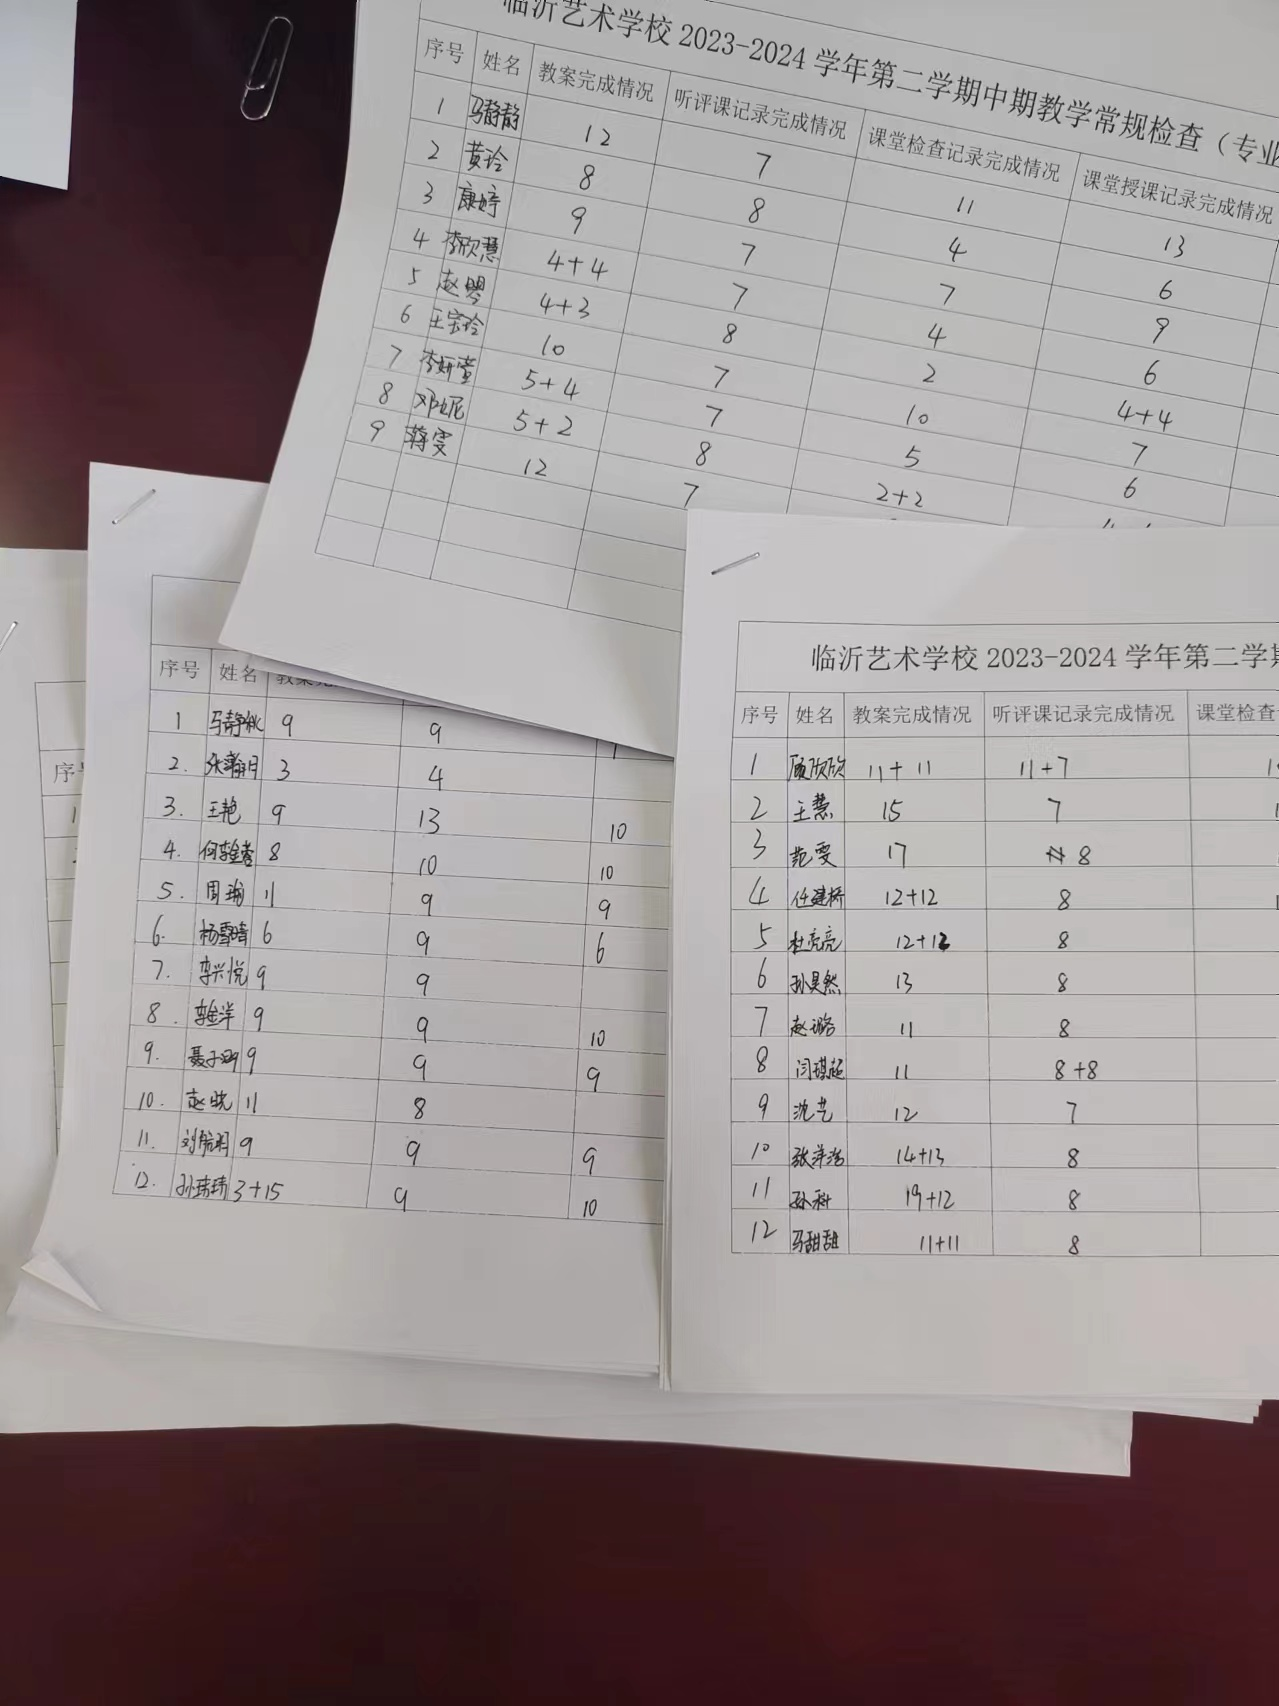 临沂艺术学校2023-2024学年第二学期中期教学常规检查（专业
序号 姓名 教案完成情况 听评课记录完成情况 课堂检查记录完成情况 课堂授课记录完成情况
1 马静静 12 7 11 13
2 黄玲 8 8 4 6
3 康婷 9 7 7 9
4 李欣慧 4+4 7 4 6
5 赵 4+3 8 2 4+4
6 王宗玲 10 7 10 7
7 李妍萱 5+4 7 5 6
8 邓妮 5+2 8 2+2
9 蒋雯 12 7
序号 姓名
1 马静秋 9 9
2. 张瀚月 3 4
3. 王艳 9 13 10
4. 8 10 10
5. 周瑜 11 9 9
6. 杨雪晴 6 9 6
7. 李兴悦 9 9
8. 9 9 10
9. 聂子 9 9 9
10. 赵 11 8
11. 刘航明 9 9 9
12. 孙玮玮 3+15 9 10
临沂艺术学校2023-2024学年第二学期
序号 姓名 教案完成情况 听评课记录完成情况 课堂检查
1 顾欣欣 11+11 11+7
2 王慧 15 7
3 范雯 17 8
4 任建桥 12+12 8
5 杜亮亮 12+12 8
6 孙昊然 13 8
7 赵璐 11 8
8 闫琪超 11 8+8
9 沈艺 12 7
10 张萍浩 14+13 8
11 孙科 19+12 8
12 马甜甜 11+11 8
序号